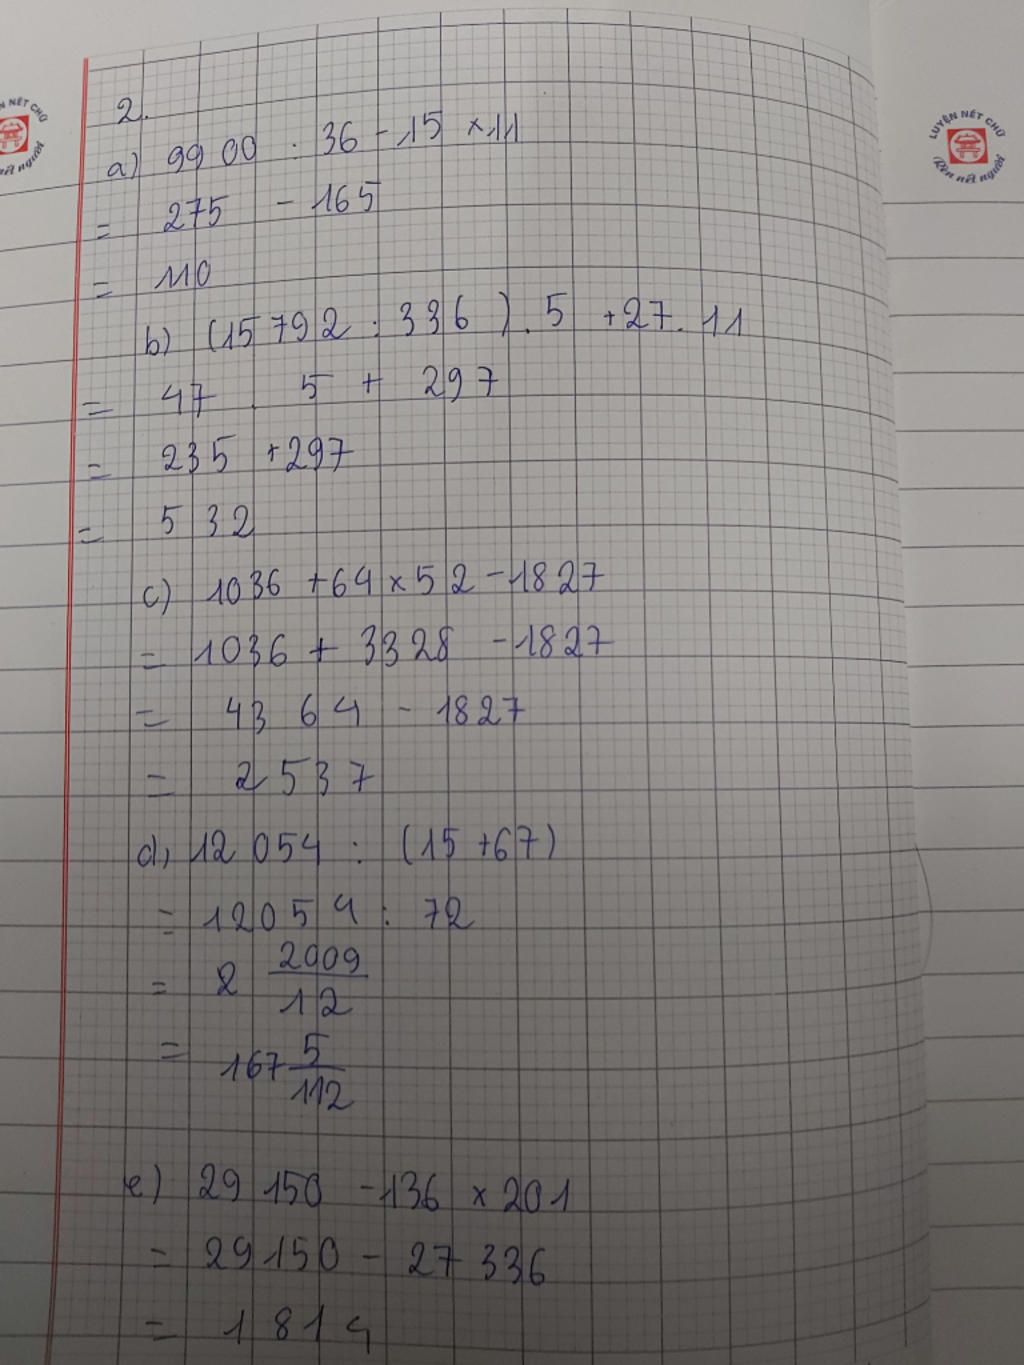 N NÉT CHỮ
nét người
LUYỆN NÉT CHỮ
Rèn nết người
2.
a) 9900 : 36 - 15 × 11
= 275 - 165
= 110
b) (15792 : 336) . 5 + 27 . 11
= 47 . 5 + 297
= 235 + 297
= 532
c) 1036 + 64 × 52 - 1827
= 1036 + 3328 - 1827
= 4364 - 1827
= 2537
d) 12054 : (15 + 67)
= 12054 : 72
= 2 2009/12
= 167 5/112
e) 29150 - 136 × 201
= 29150 - 27336
= 1814